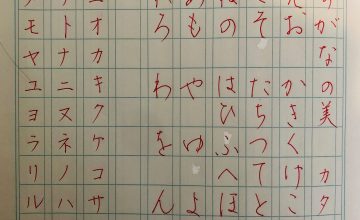 がなの美 カタ
おかきくけこ
そたちつてと
のはひふへほ
もやゆよ
ろわをん
オカキクケコサ
トナニヌネノハ
モヤユヨラリル